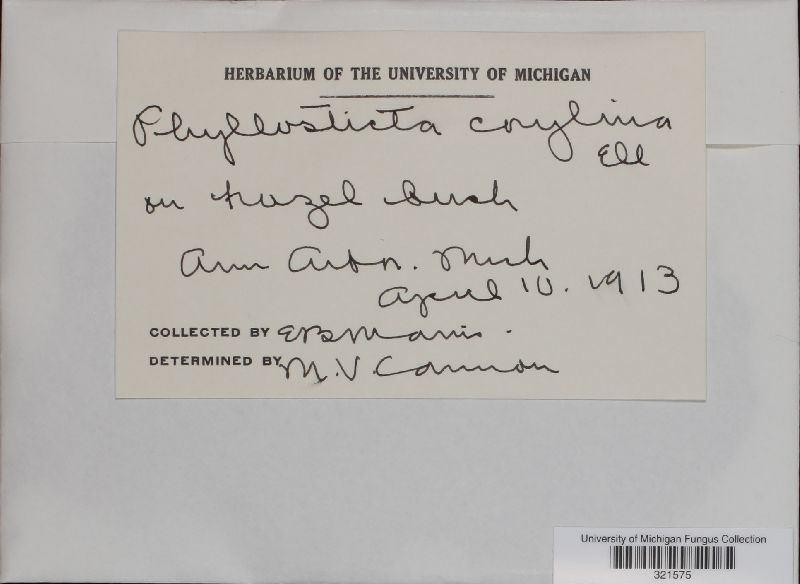 HERBARIUM OF THE UNIVERSITY OF MICHIGAN
Phyllosticta corylina
Ell
on hazel bush
Ann Arbor. Mich
April 10. 1913
COLLECTED BY E B Mains.
DETERMINED BY M. V. Cannon
University of Michigan Fungus Collection
321575